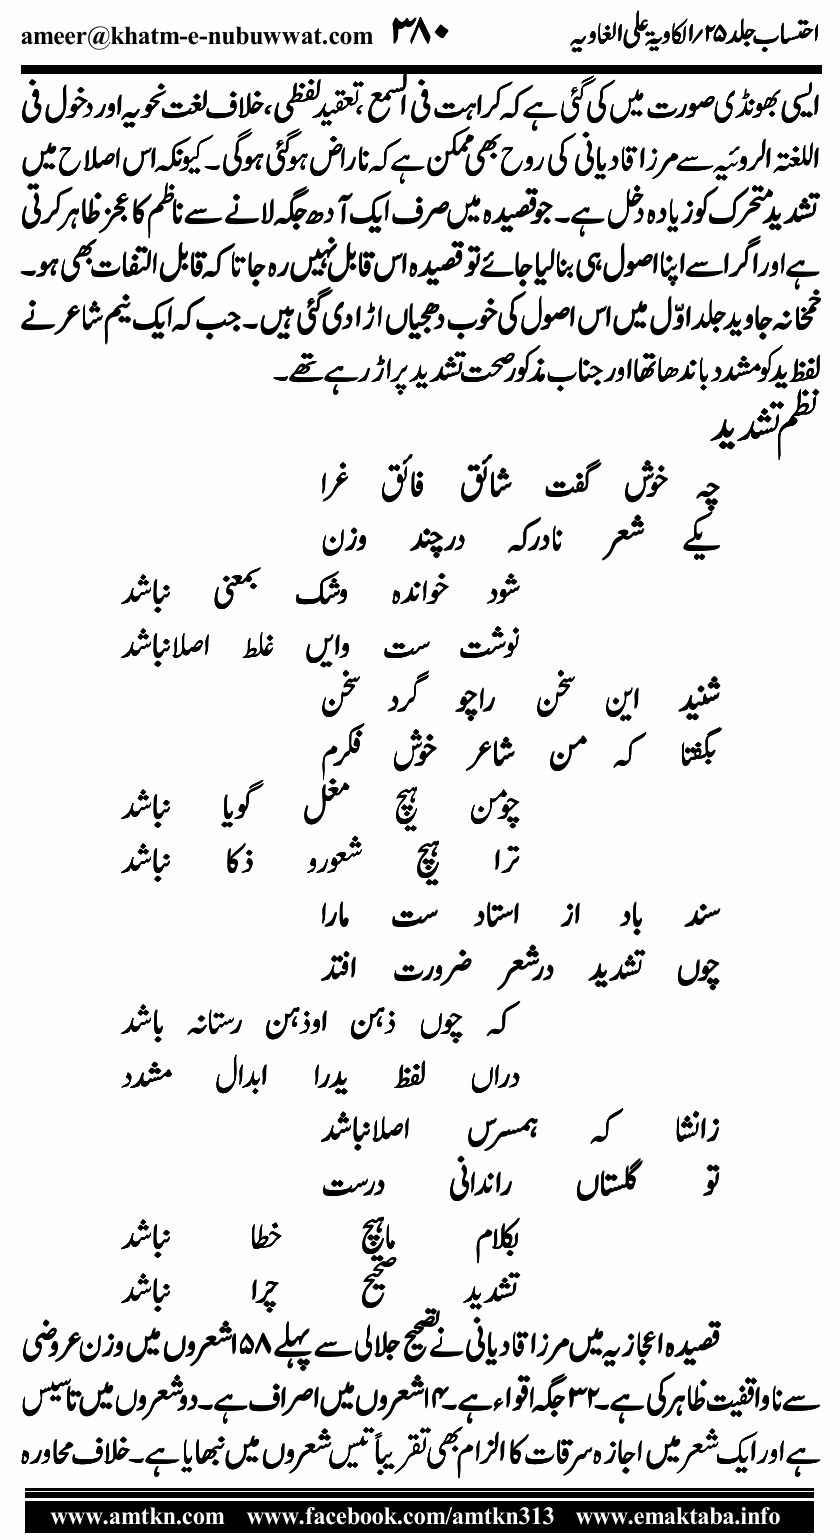 احتساب جلد ۲۵؍الکاویۃ علی الغاویہ ۳۸۰ ameer@khatm-e-nubuwwat.com
ایسی بھونڈی صورت میں کی گئی ہے کہ کراہت فی السمع، تعقید لفظی، خلاف لغت نحویہ اور دخول فی
اللغتہ الروئیہ سے مرزا قادیانی کی روح بھی ممکن ہے کہ ناراض ہوگئی ہوگی۔ کیونکہ اس اصلاح میں
تشدید متحرک کو زیادہ دخل ہے۔ جو قصیدہ میں صرف ایک آدھ جگہ لانے سے ناظم کا عجز ظاہر کرتی
ہے اور اگر اسے اپنا اصول ہی بنا لیا جائے تو قصیدہ اس قابل نہیں رہ جاتا کہ قابل التفات بھی ہو۔
خمخانہ جاوید جلد اوّل میں اس اصول کی خوب دھجیاں اڑا دی گئی ہیں۔ جب کہ ایک نیم شاعر نے
لفظ ید کو مشدد باندھا تھا اور جناب مذکور صحت تشدید پر اڑ رہے تھے۔
نظم تشدید
چہ خوش گفت شائق فائق غرا
یکے شعر نادرکہ درچند وزن
شود خواندہ وشک بمعنی نباشد
نوشت ست وایں غلط اصلانباشد
شنید این سخن راچو گرد سخن
بگفتا کہ من شاعر خوش فکرم
چومن ہیچ مغل گویا نباشد
ترا ہیچ شعورو ذکا نباشد
سند باد از استاد ست مارا
چوں تشدید درشعر ضرورت افتد
کہ چوں ذہن اوذہن رستانہ باشد
دراں لفظ یدرا ابدال مشدد
زانشا کہ ہمسرس اصلانباشد
تو گلستاں راندانی درست
بکلام ماہیچ خطا نباشد
تشدید صحیح چرا نباشد
قصیدہ اعجازیہ میں مرزا قادیانی نے تصحیح جلالی سے پہلے ۱۵۸شعروں میں وزن عروضی
سے ناواقفیت ظاہر کی ہے۔ ۳۲ جگہ اقواء ہے۔ ۱۴شعروں میں اصراف ہے۔ دو شعروں میں تاسیس
ہے اور ایک شعر میں اجازہ سرقات کا الزام بھی تقریباً تیس شعروں میں نبھایا ہے۔ خلاف محاورہ
www.amtkn.com www.facebook.com/amtkn313 www.emaktaba.info